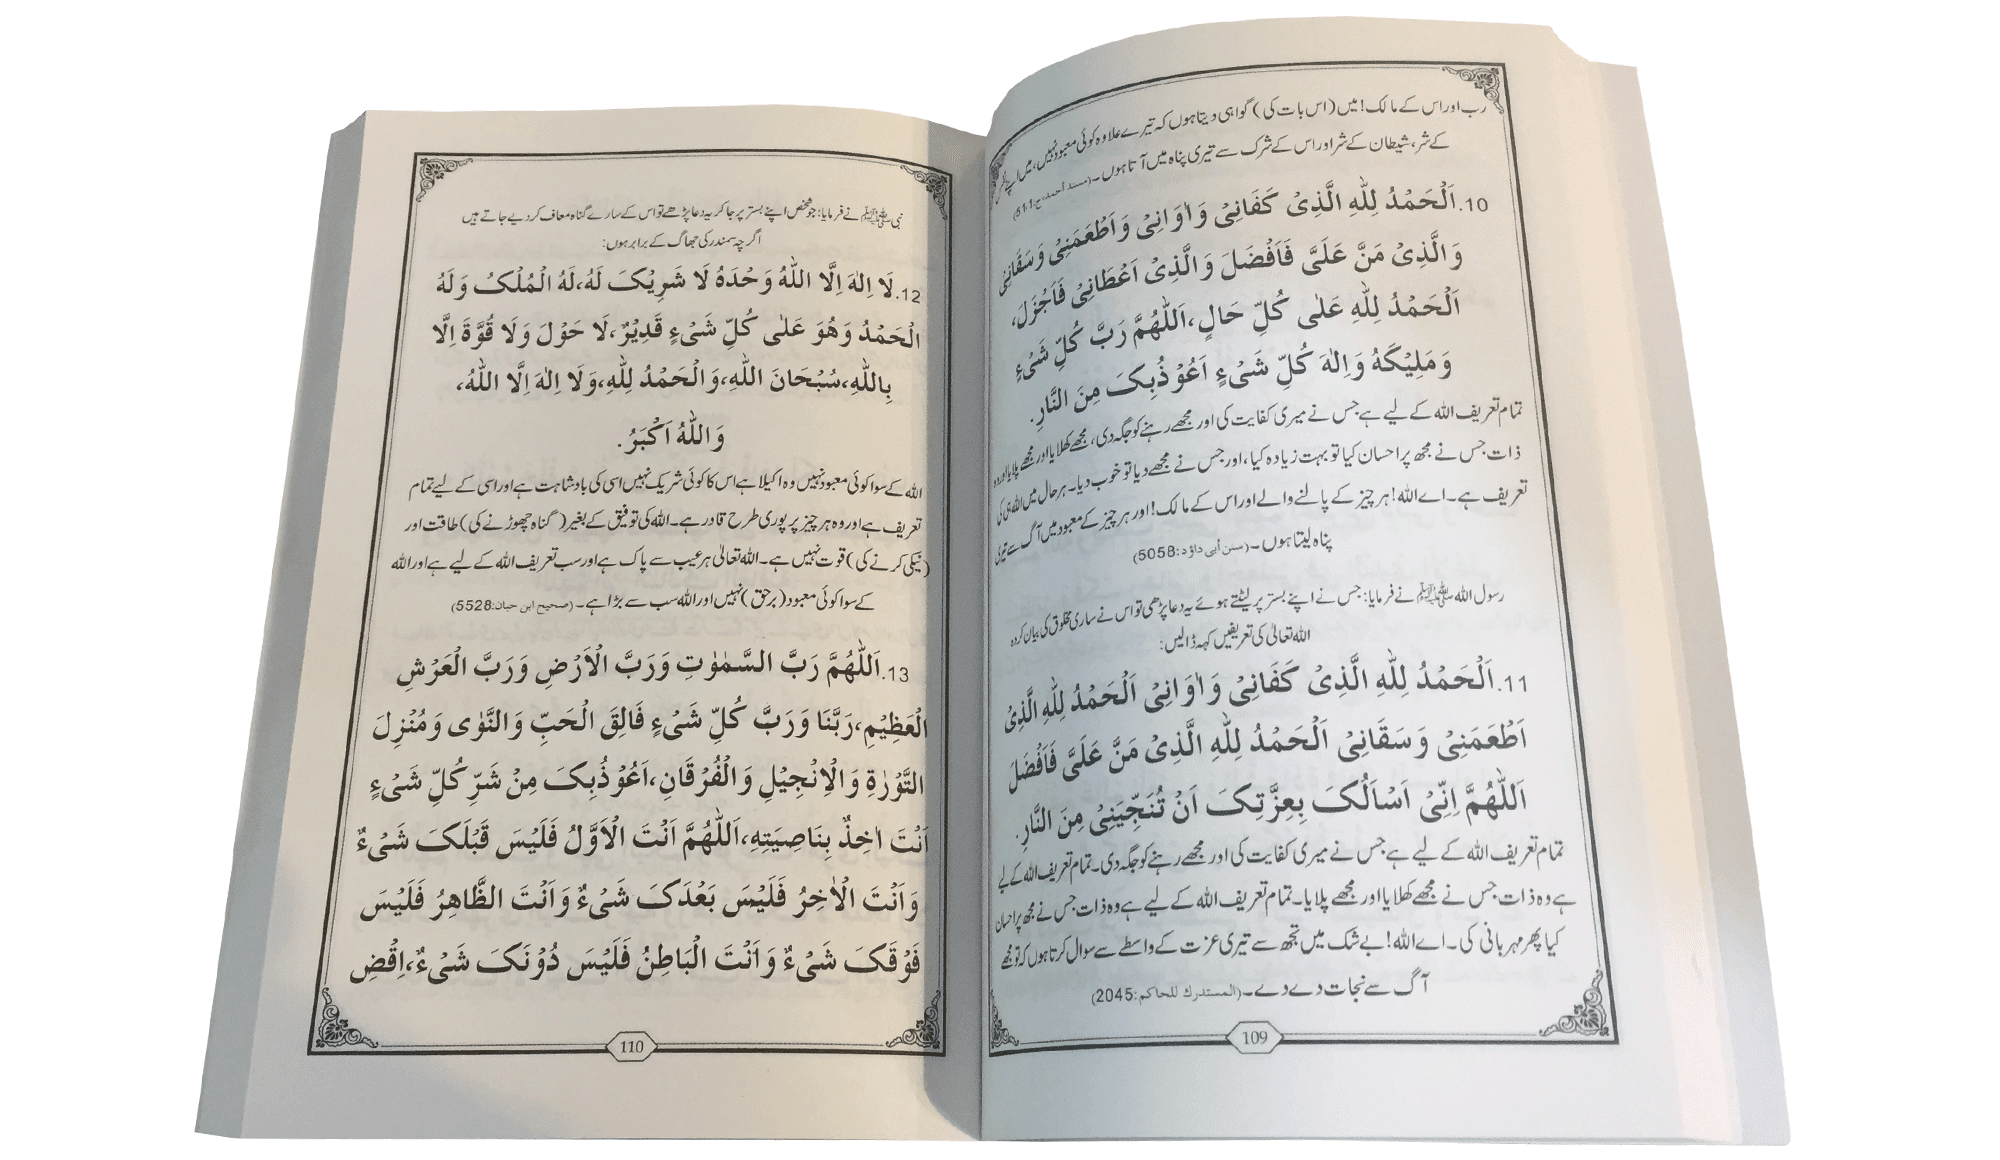 رب اور اس کے مالک! میں (اس بات کی) گواہی دیتا ہوں کہ تیرے علاوہ کوئی معبود نہیں، میں اپنے نفس
کے شر، شیطان کے شر اور اس کے شرک سے تیری پناہ میں آتا ہوں۔ (مسند احمد،ج:1،51)
10. اَلْحَمْدُ لِلّٰهِ الَّذِیْ كَفَانِیْ وَاٰوَانِیْ وَاَطْعَمَنِیْ وَسَقَانِیْ
وَالَّذِیْ مَنَّ عَلَیَّ فَاَفْضَلَ وَالَّذِیْ اَعْطَانِیْ فَاَجْزَلَ،
اَلْحَمْدُ لِلّٰهِ عَلٰی كُلِّ حَالٍ،اَللّٰهُمَّ رَبَّ كُلِّ شَیْءٍ
وَمَلِیْكَهٗ وَاِلٰهَ كُلِّ شَیْءٍ اَعُوْذُبِکَ مِنَ النَّارِ.
تمام تعریف اللہ کے لیے ہے جس نے میری کفایت کی اور مجھے رہنے کو جگہ دی، مجھے کھلایا اور مجھے پلایا اور وہ
ذات جس نے مجھ پر احسان کیا تو بہت زیادہ کیا، اور جس نے مجھے دیا تو خوب دیا۔ ہر حال میں اللہ ہی کی
تعریف ہے۔ اے اللہ! ہر چیز کے پالنے والے اور اس کے مالک! اور ہر چیز کے معبود میں آگ سے تیری
پناہ لیتا ہوں۔ (سنن أبی داؤد:5058)
رسول اللہ ﷺ نے فرمایا: جس نے اپنے بستر پر لیٹتے ہوئے یہ دعا پڑھی تو اس نے ساری مخلوق کی بیان کردہ
اللہ تعالیٰ کی تعریفیں کہہ ڈالیں:
11. اَلْحَمْدُ لِلّٰهِ الَّذِیْ كَفَانِیْ وَاٰوَانِیْ اَلْحَمْدُ لِلّٰهِ الَّذِیْ
اَطْعَمَنِیْ وَسَقَانِیْ اَلْحَمْدُ لِلّٰهِ الَّذِیْ مَنَّ عَلَیَّ فَاَفْضَلَ
اَللّٰهُمَّ اِنِّیْ اَسْاَلُکَ بِعِزَّتِکَ اَنْ تُنَجِّیَنِیْ مِنَ النَّارِ.
تمام تعریف اللہ کے لیے ہے جس نے میری کفایت کی اور مجھے رہنے کو جگہ دی۔ تمام تعریف اللہ کے لیے
ہے وہ ذات جس نے مجھے کھلایا اور مجھے پلایا۔ تمام تعریف اللہ کے لیے ہے وہ ذات جس نے مجھ پر احسان
کیا پھر مہربانی کی۔ اے اللہ! بے شک میں تجھ سے تیری عزت کے واسطے سے سوال کرتا ہوں کہ تو مجھے
آگ سے نجات دے دے۔ (المستدرك للحاكم:2045)
109
نبی ﷺ نے فرمایا: جو شخص اپنے بستر پر جا کر یہ دعا پڑھے تو اس کے سارے گناہ معاف کر دیے جاتے ہیں
اگرچہ سمندر کی جھاگ کے برابر ہوں:
12. لَا اِلٰهَ اِلَّا اللّٰهُ وَحْدَهٗ لَا شَرِیْکَ لَهٗ،لَهُ الْمُلْکُ وَلَهُ
الْحَمْدُ وَهُوَ عَلٰی كُلِّ شَیْءٍ قَدِیْرٌ،لَا حَوْلَ وَلَا قُوَّةَ اِلَّا
بِاللّٰهِ،سُبْحَانَ اللّٰهِ،وَالْحَمْدُ لِلّٰهِ،وَلَا اِلٰهَ اِلَّا اللّٰهُ،
وَاللّٰهُ اَكْبَرُ.
اللہ کے سوا کوئی معبود نہیں وہ اکیلا ہے اس کا کوئی شریک نہیں اسی کی بادشاہت ہے اور اسی کے لیے تمام
تعریف ہے اور وہ ہر چیز پر پوری طرح قادر ہے۔ اللہ کی توفیق کے بغیر (گناہ چھوڑنے کی) طاقت اور
(نیکی کرنے کی) قوت نہیں ہے۔ اللہ تعالیٰ ہر عیب سے پاک ہے اور سب تعریف اللہ کے لیے ہے اور اللہ
کے سوا کوئی معبود (برحق) نہیں اور اللہ سب سے بڑا ہے۔ (صحیح ابن حبان:5528)
13. اَللّٰهُمَّ رَبَّ السَّمٰوٰتِ وَرَبَّ الْاَرْضِ وَرَبَّ الْعَرْشِ
الْعَظِیْمِ،رَبَّنَا وَرَبَّ كُلِّ شَیْءٍ فَالِقَ الْحَبِّ وَالنَّوٰی وَمُنْزِلَ
التَّوْرٰةِ وَالْاِنْجِیْلِ وَالْفُرْقَانِ،اَعُوْذُبِکَ مِنْ شَرِّ كُلِّ شَیْءٍ
اَنْتَ اٰخِذٌ بِنَاصِیَتِهٖ،اَللّٰهُمَّ اَنْتَ الْاَوَّلُ فَلَیْسَ قَبْلَکَ شَیْءٌ
وَاَنْتَ الْاٰخِرُ فَلَیْسَ بَعْدَکَ شَیْءٌ وَاَنْتَ الظَّاهِرُ فَلَیْسَ
فَوْقَکَ شَیْءٌ وَاَنْتَ الْبَاطِنُ فَلَیْسَ دُوْنَکَ شَیْءٌ،اِقْضِ
110